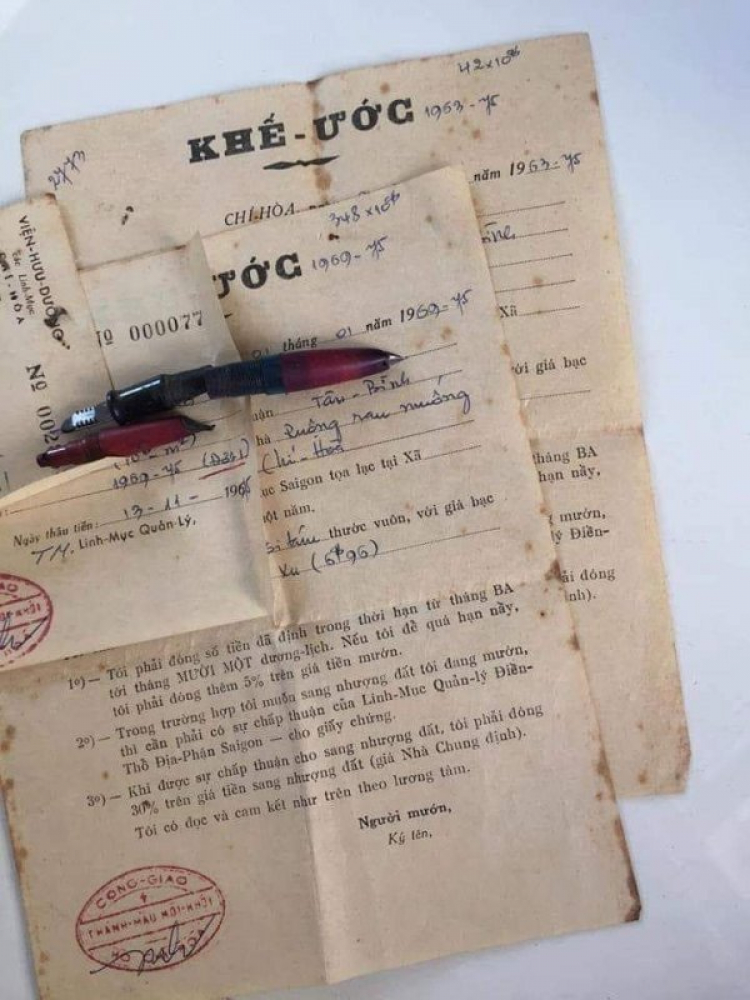 42 x
KHẾ-ƯỚC 1963-75
2773
CHÍ-HÒA, năm 1963-75
348 x
ƯỚC 1969-75
VIỆN-HƯU-DƯỠNG
Các Linh-Mục
CHÍ-HÒA
Xã
Nº 000077
01 tháng 01 năm 1969-75
với giá bạc
Nº 002
Tân-Bình
Ruộng rau muống
m²)
1969-75
Chí-Hoà
tháng BA
hạn này,
ục Saigon tọa lạc tại Xã
ột năm.
Ngày thâu tiền: 13-11-196
TM. Linh-Mục Quản-Lý,
tám thước vuôn, với giá bạc
xu (6$96)
mướn,
lý Điền-
ải đóng
ịnh).
1º) — Tôi phải đóng số tiền đã định trong thời hạn từ tháng BA
tới tháng MƯỜI MỘT dương-lịch. Nếu tôi để quá hạn này,
tôi phải đóng thêm 5% trên giá tiền mướn.
2º) — Trong trường hợp tôi muốn sang nhượng đất tôi đang mướn,
thì cần phải có sự chấp thuận của Linh-Mục Quản-lý Điền-
Thổ Địa-Phận Saigon — cho giấy chứng.
3º) — Khi được sự chấp thuận cho sang nhượng đất, tôi phải đóng
30% trên giá tiền sang nhượng đất (giá Nhà Chung định).
Tôi có đọc và cam kết như trên theo lương tâm.
Người mướn,
Ký tên,
CÔNG-GIÁO
THÁNH-MẪU HÔI-KHÔI